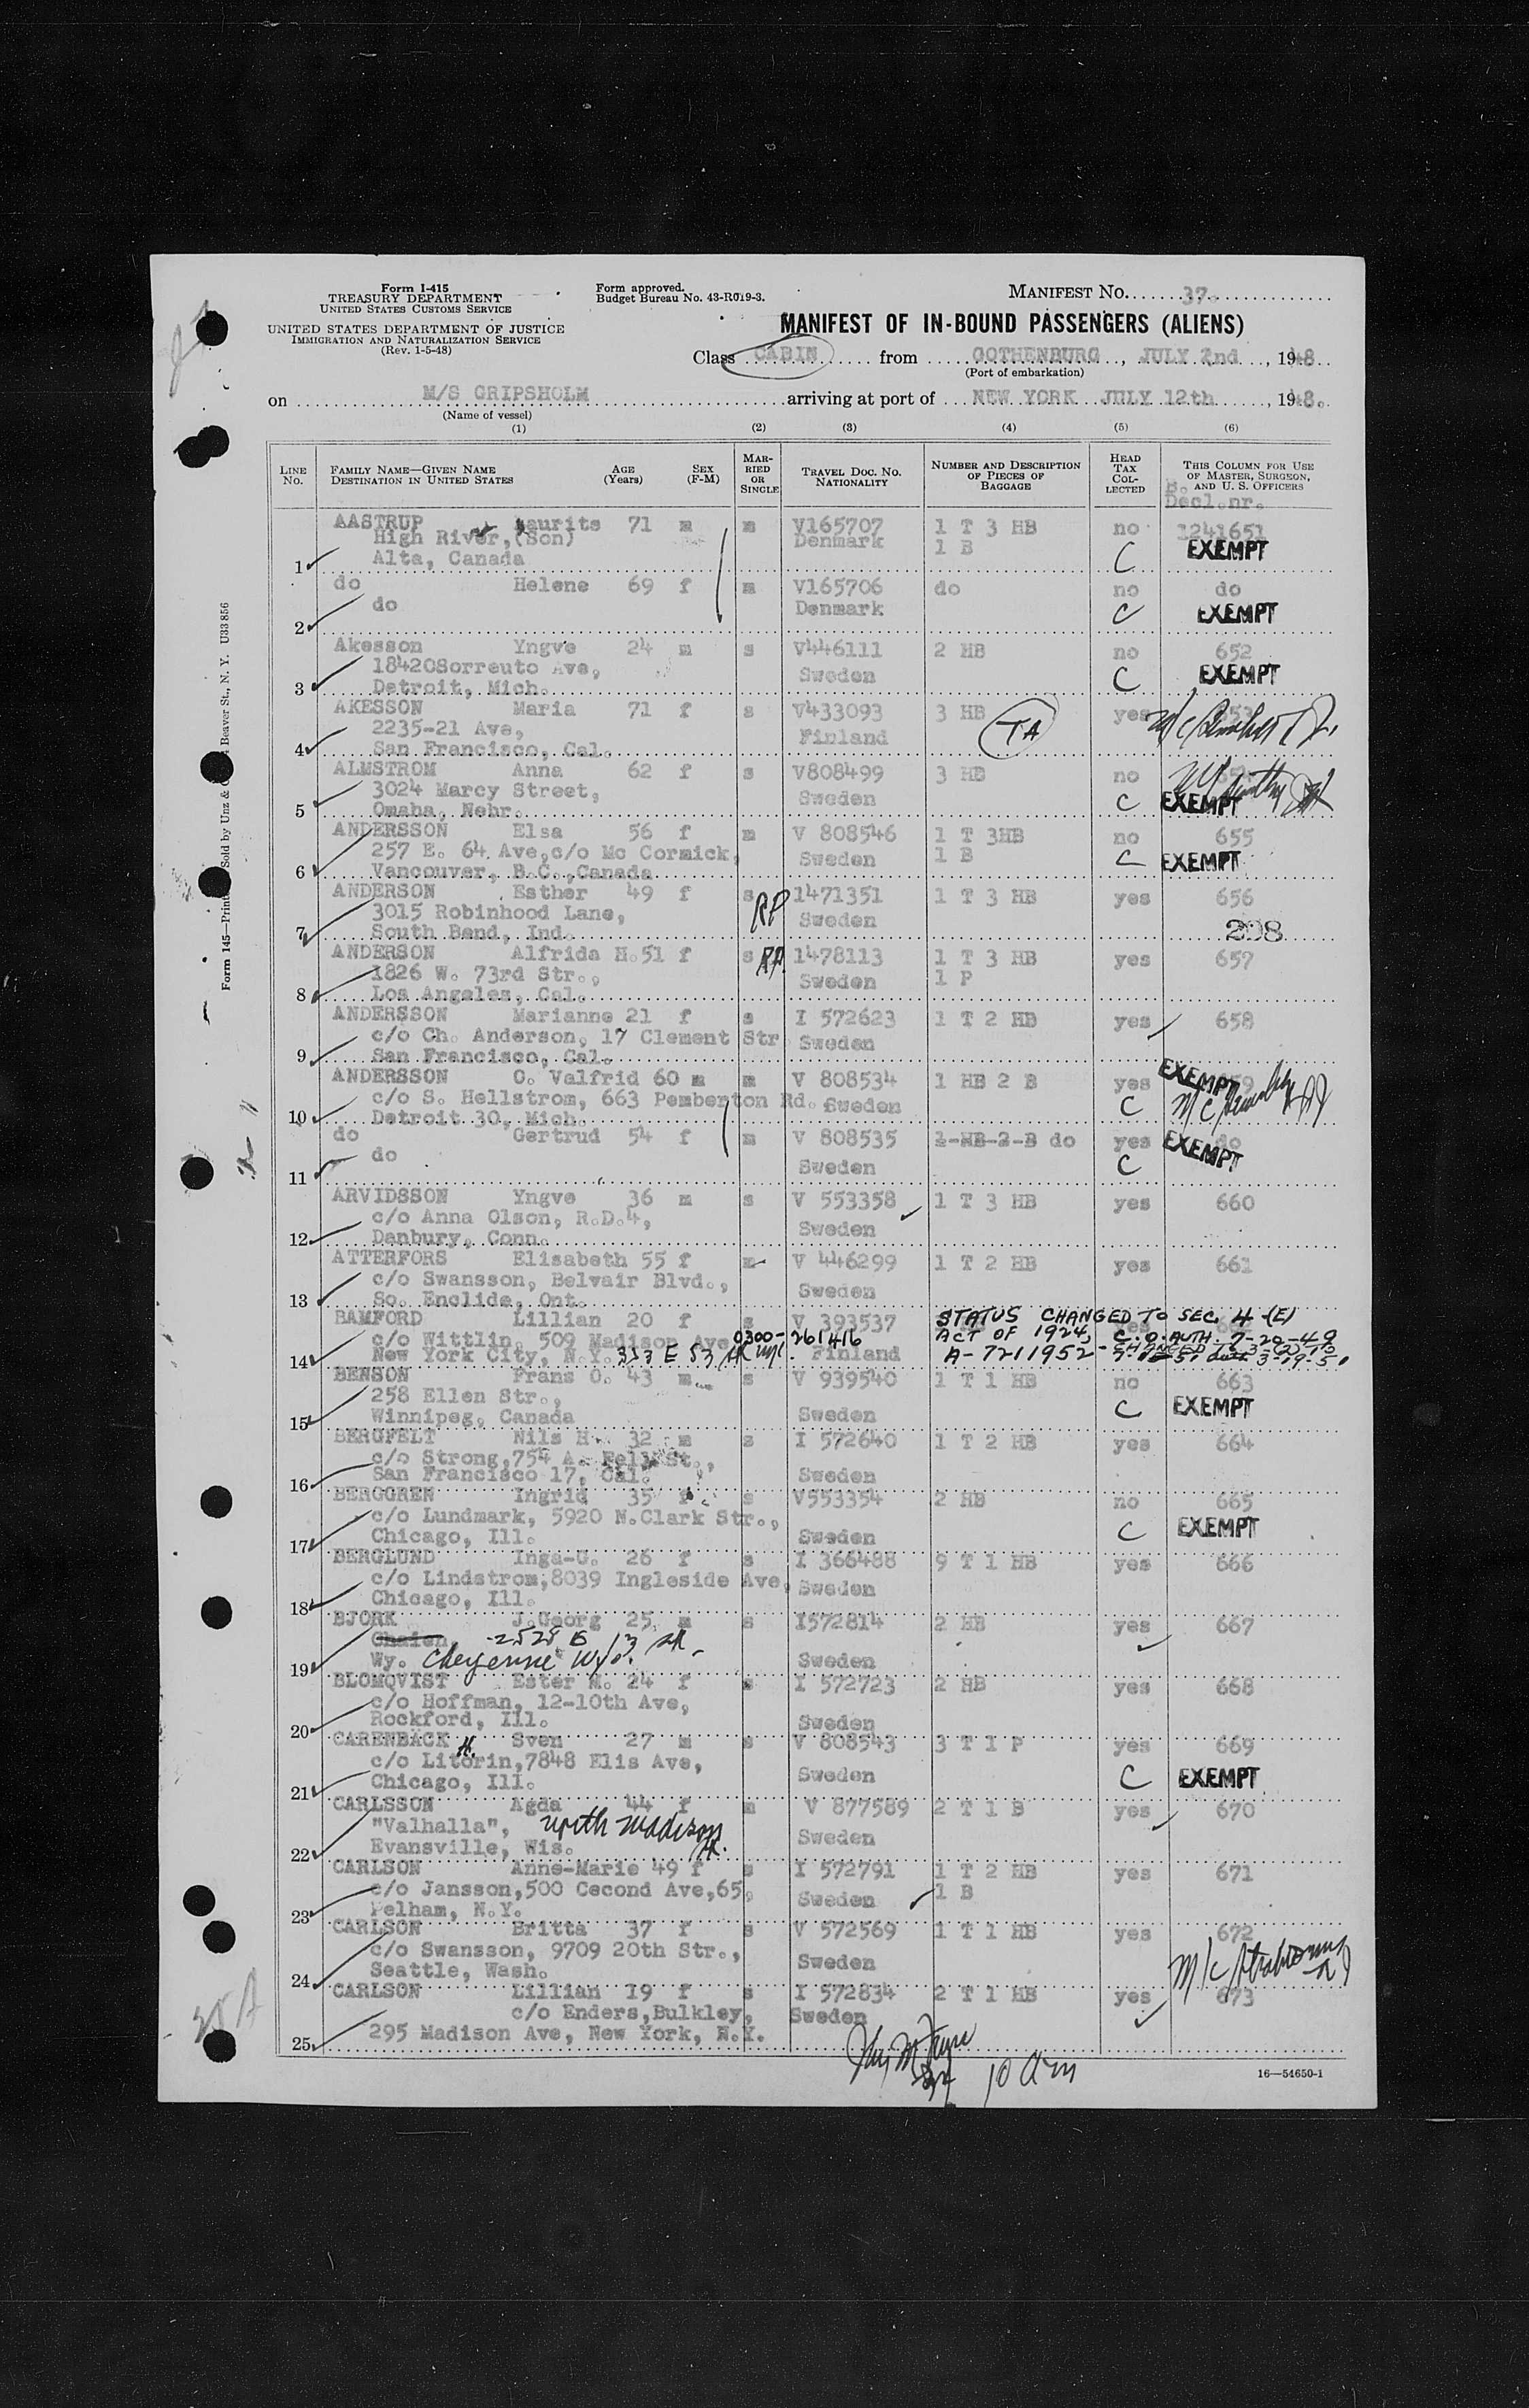 Form I-415
TREASURY DEPARTMENT
UNITED STATES CUSTOMS SERVICE
UNITED STATES DEPARTMENT OF JUSTICE
IMMIGRATION AND NATURALIZATION SERVICE
(Rev. 1-5-48)
Form approved.
Budget Bureau No. 43-R019-3.
MANIFEST No. 37.
MANIFEST OF IN-BOUND PASSENGERS (ALIENS)
Class CABIN from GOTHENBURG, JULY 2nd, 1948
(Port of embarkation)
on M/S GRIPSHOLM arriving at port of NEW YORK JULY 12th, 1948.
(Name of vessel)
(1) (2) (3) (4) (5) (6)
LINE No. FAMILY NAME—GIVEN NAME DESTINATION IN UNITED STATES AGE (Years) SEX (F-M) MARRIED OR SINGLE TRAVEL DOC. NO. NATIONALITY NUMBER AND DESCRIPTION OF PIECES OF BAGGAGE HEAD TAX COLLECTED THIS COLUMN FOR USE OF MASTER, SURGEON, AND U. S. OFFICERS
B. Decl.nr.
AASTRUP Laurits 71 m m V165707 1 T 3 HB no 1241651
High River, (Son) Denmark 1 B
1 Alta, Canada C EXEMPT
do Helene 69 f m V165706 do no do
do Denmark
2 C EXEMPT
Akesson Yngve 24 m s V446111 2 HB no 652
18420Sorreuto Ave, Sweden
3 Detroit, Mich. C EXEMPT
AKESSON Maria 71 f s V433093 3 HB yes
2235-21 Ave, Finland TA
4 San Francisco, Cal.
ALMSTROM Anna 62 f s V808499 3 HB no
3024 Marcy Street, Sweden
5 Omaha, Nebr. C EXEMPT
ANDERSSON Elsa 56 f m V 808546 1 T 3HB no 655
257 E. 64 Ave,c/o Mc Cormick, Sweden 1 B
6 Vancouver, B.C.,Canada C EXEMPT
ANDERSON Esther 49 f s RP 1471351 1 T 3 HB yes 656
3015 Robinhood Lane, Sweden
7 South Bend, Ind. 298
ANDERSON Alfrida H.51 f s RP 1478113 1 T 3 HB yes 657
1826 W. 73rd Str., Sweden 1 P
8 Los Angeles, Cal.
ANDERSSON Marianne 21 f s I 572623 1 T 2 HB yes 658
c/o Ch. Anderson, 17 Clement Str Sweden
9 San Francisco, Cal.
ANDERSSON C. Valfrid 60 m m V 808534 1 HB 2 B yes EXEMPT
c/o S. Hellstrom, 663 Pemberton Rd. Sweden C
10 Detroit 30, Mich.
do Gertrud 54 f m V 808535 1-HB-2-B do yes do
do Sweden C EXEMPT
11
ARVIDSSON Yngve 36 m s V 553358 1 T 3 HB yes 660
c/o Anna Olson, R.D.4, Sweden
12 Danbury, Conn.
ATTERFORS Elisabeth 55 f m V 446299 1 T 2 HB yes 661
c/o Swansson, Belvair Blvd., Sweden
13 So. Enclide, Ont.
BAMFORD Lillian 20 f s V 393537 STATUS CHANGED TO SEC. 4-(E)
c/o Wittlin, 509 Madison Ave 0300-261416 ACT OF 1924, C.O. AUTH. 7-20-49
14 New York City, N.Y. 333 E 53 Finland A-7211952
BENSON Frans O. 43 m s V 939540 1 T 1 HB no 663
258 Ellen Str.,
15 Winnipeg, Canada Sweden C EXEMPT
BERGFELT Nils H. 32 m s I 572640 1 T 2 HB yes 664
c/o Strong,754 A. Fell St.,
16 San Francisco 17, Cal. Sweden
BERGGREN Ingrid 35 f s V553354 2 HB no 665
c/o Lundmark, 5920 N.Clark Str.,
17 Chicago, Ill. Sweden C EXEMPT
BERGLUND Inga-G. 26 f s I 366488 9 T 1 HB yes 666
c/o Lindstrom,8039 Ingleside Ave, Sweden
18 Chicago, Ill.
BJORK J.Georg 25 m s I572814 2 HB yes 667
2528 E 13 St.
19 Wy. Cheyenne Wyo. Sweden
BLOMQVIST Ester M. 24 f s I 572723 2 HB yes 668
c/o Hoffman, 12-10th Ave,
20 Rockford, Ill. Sweden
CARENBACK Sven 27 m s V 808543 3 T 1 P yes 669
c/o Litorin,7848 Elis Ave,
21 Chicago, Ill. Sweden C EXEMPT
CARLSSON Agda 44 f m V 877589 2 T 1 B yes 670
"Valhalla", north madison St.
22 Evansville, Wis. Sweden
CARLSON Anne-Marie 49 f s I 572791 1 T 2 HB yes 671
c/o Jansson,500 Cecond Ave,65, Sweden 1 B
23 Pelham, N.Y.
CARLSON Britta 37 f s V 572569 1 T 1 HB yes 672
c/o Swansson, 9709 20th Str., Sweden
24 Seattle, Wash.
CARLSON Lillian 19 f s I 572834 2 T 1 HB yes 673
c/o Enders,Bulkley, Sweden
25 295 Madison Ave, New York, N.Y.
10 am
16—54650-1